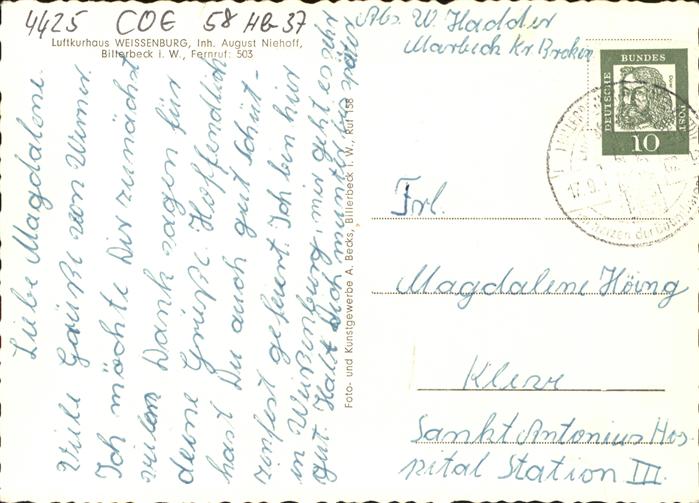 4425 COE 58 HB-37
Luftkurhaus WEISSENBURG, Inh. August Niehoff,
Billerbeck i. W., Fernruf: 503
Liebe Magdalene.
Viele Grüße von Werner.
Ich möchte Dir zunächst
vielen Dank sagen für
deine Grüße. Hoffendlich
hast Du auch gut Schüt-
zenfest gefeiert. Ich bin hier
in Weißenburg, mir geht es sehr
gut. Halt dich munter
Foto- und Kunstgewerbe A. Becks, Billerbeck i. W., Ruf 158
Abs. W. Hadder
Marbeck Kr Borken
DEUTSCHE BUNDES POST
10
Frl.
Magdalene Höing
Kleve
Sankt Antonius Hos-
pital Station III.